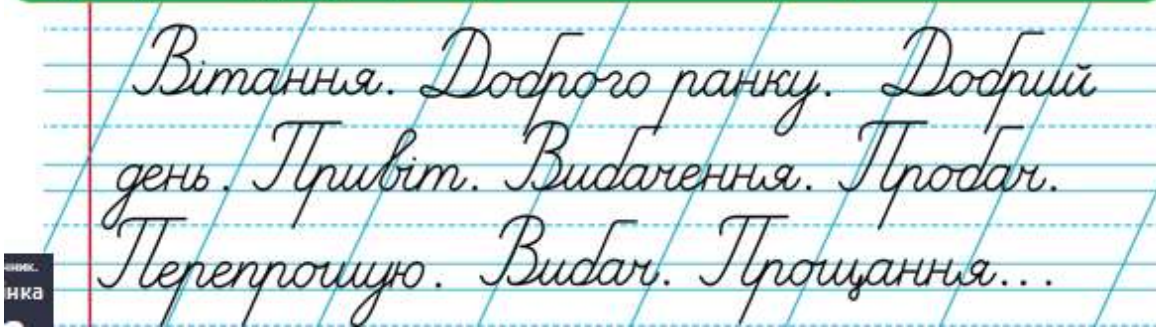 Вітання. Доброго ранку. Добрий
день. Привіт. Вибачення. Пробач.
Перепрошую. Вибач. Прощання...